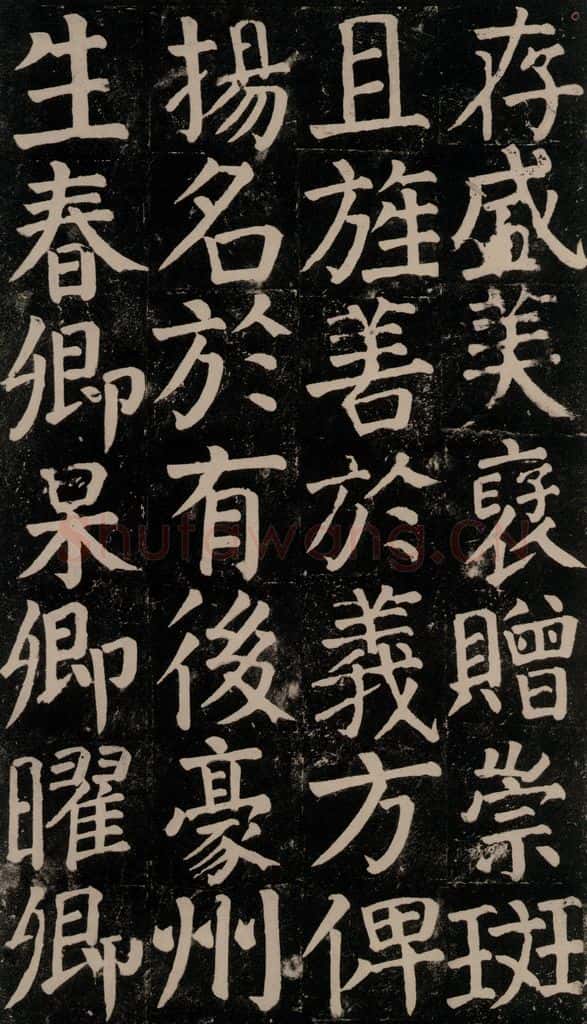 存盛美褒贈崇班
且旌善於義方俾
揚名於有後豪州
生春卿杲卿曜卿
shufawang.CN